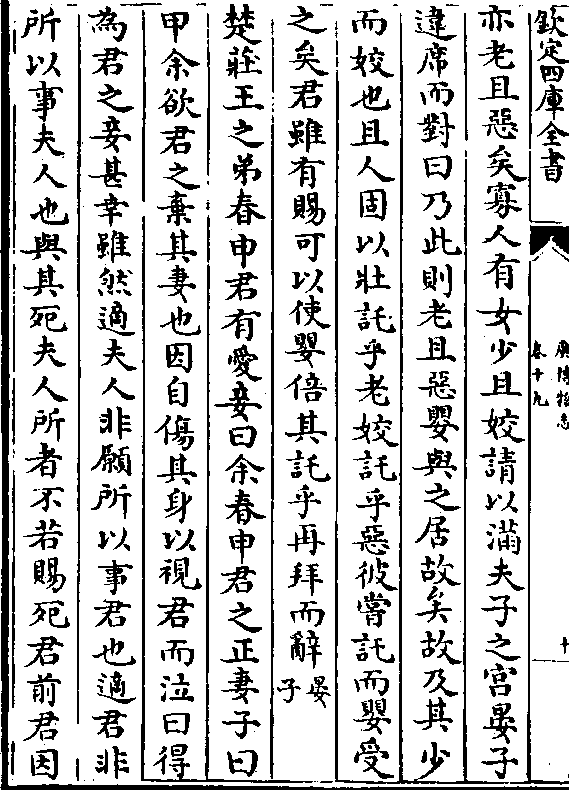 欽定四庫全書
廣博物志
卷十九
十
亦老且惡矣寡人有女少且姣請以滿夫子之宮晏子
違席而對曰乃此則老且惡嬰與之居故矣故及其少
而姣也且人固以壯託乎老姣託乎惡彼嘗託而嬰受
之矣君雖有賜可以使嬰倍其託乎再拜而辭晏子
楚莊王之弟春申君有愛妾曰余春申君之正妻子曰
甲余欲君之棄其妻也因自傷其身以視君而泣曰得
為君之妾甚幸雖然適夫人非願所以事君也適君非
所以事夫人也與其死夫人所者不若賜死君前君因